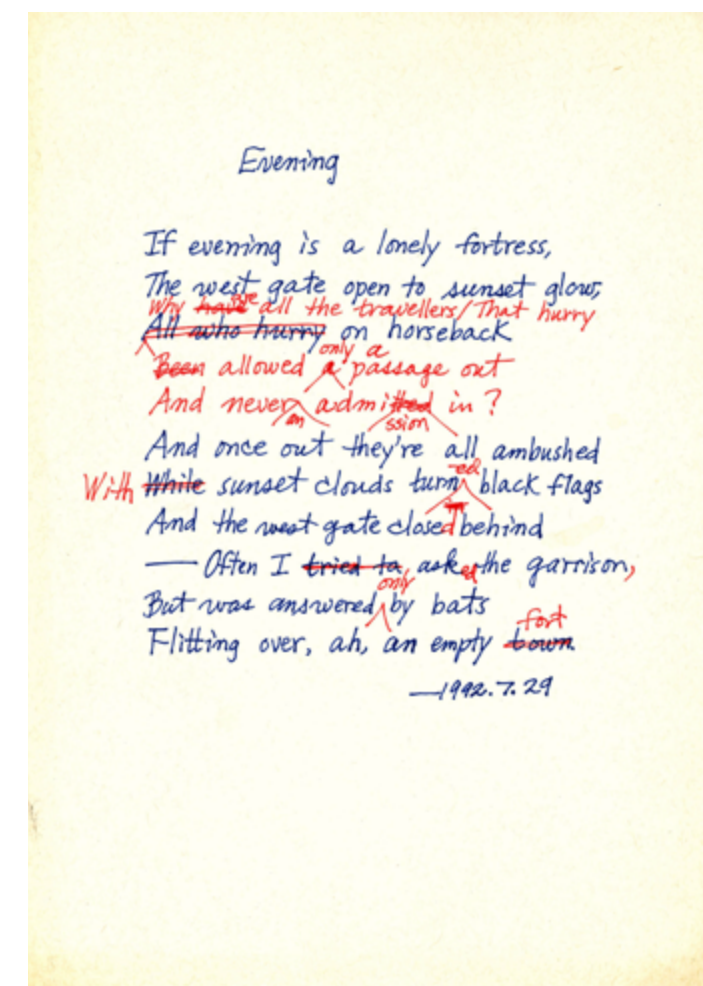 Evening
If evening is a lonely fortress,
The west gate open to sunset glow,
Why have are all the travellers/That hurry
All who hurry on horseback
only a
Been allowed a passage out
And never admitted in?
an ssion
And once out they're all ambushed
ed
With While sunset clouds turn black flags
And the west gate closed behind
— Often I tried to asked the garrison,
only
But was answered by bats
fort
Flitting over, ah, an empty town.
—1992.7.29